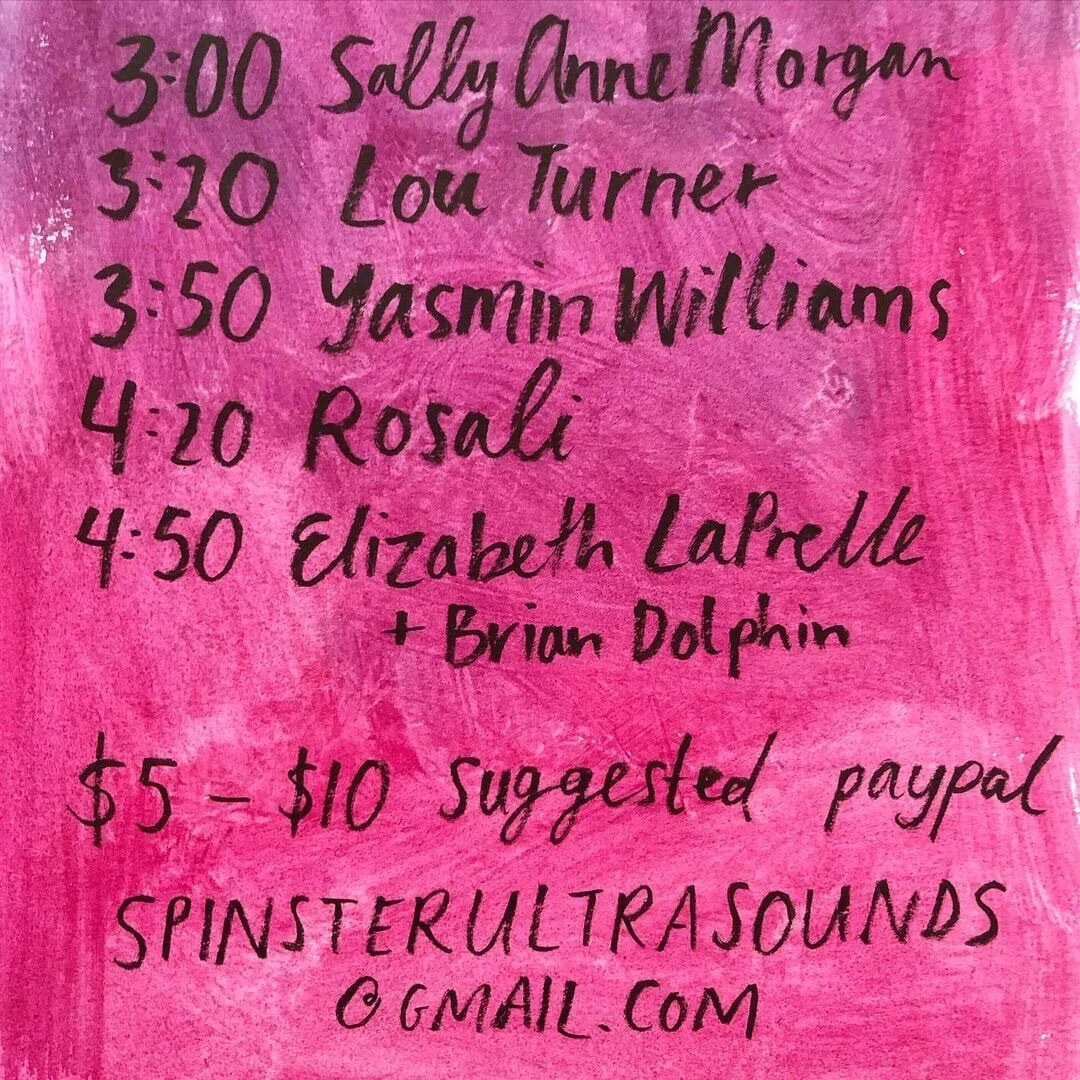 3:00 Sally Anne Morgan
3:20 Lou Turner
3:50 Yasmin Williams
4:20 Rosali
4:50 Elizabeth LaPrelle
+ Brian Dolphin
$5 - $10 Suggested paypal
SPINSTERULTRASOUNDS
@GMAIL.COM